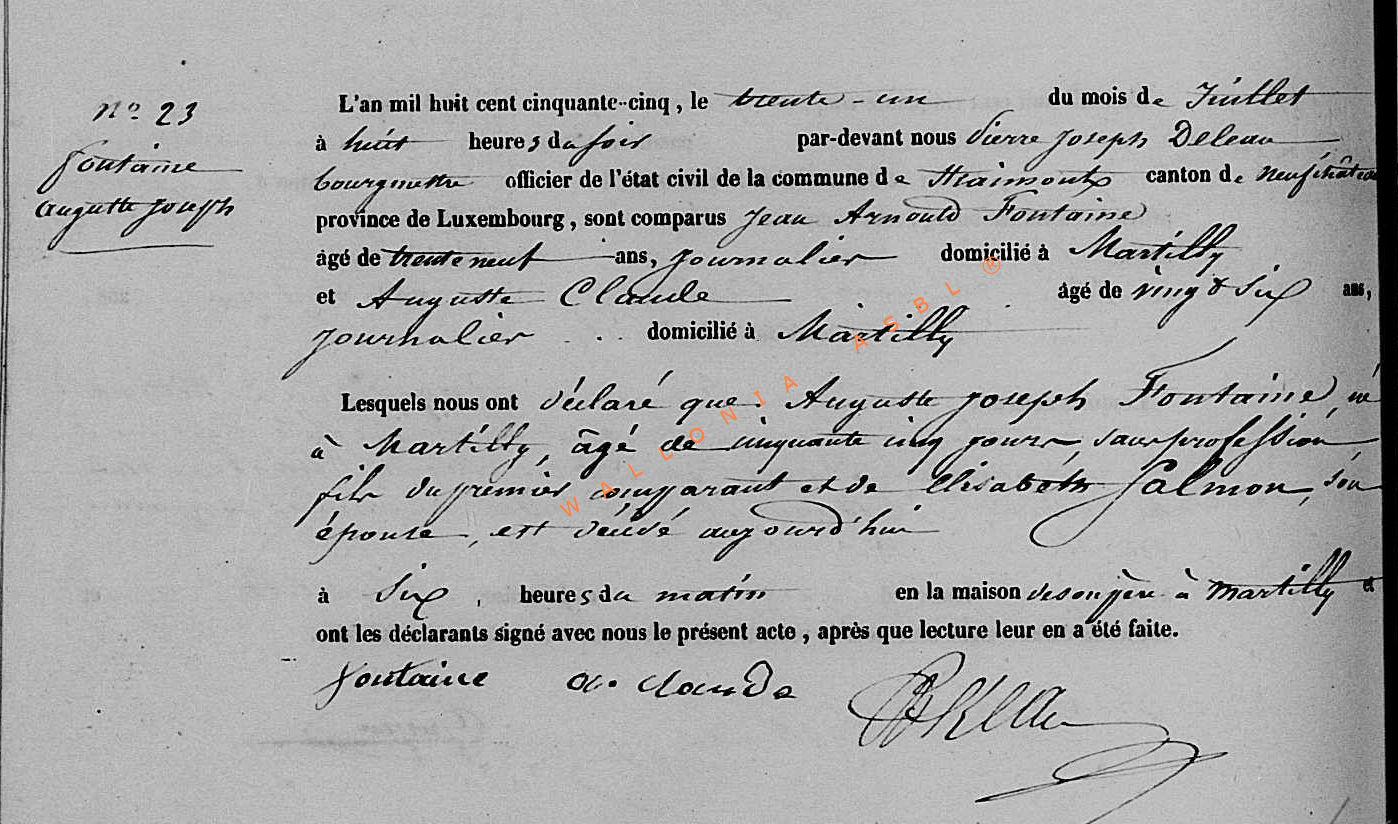 N° 23
Fontaine
Auguste Joseph
L'an mil huit cent cinquante-cinq, le trente-un du mois de Juillet
à huit heures du soir par-devant nous Pierre Joseph Deleau
bourgmestre officier de l'état civil de la commune de Straimont canton de Neufchâteau
province de Luxembourg, sont comparus Jean Arnould Fontaine
âgé de trente neuf ans, journalier domicilié à Martilly
et Auguste Claude âgé de vingt six ans,
journalier domicilié à Martilly
Lesquels nous ont déclaré que Auguste Joseph Fontaine, né
à Martilly, âgé de cinquante cinq jours, sans profession
fils du premier comparant et de Elisabeth Salmon, son
épouse, est décédé aujourd'hui
à six heures du matin en la maison de son père à Martilly et
ont les déclarants signé avec nous le présent acte, après que lecture leur en a été faite.
Fontaine a. Claude
WALLONIA ASBL ®